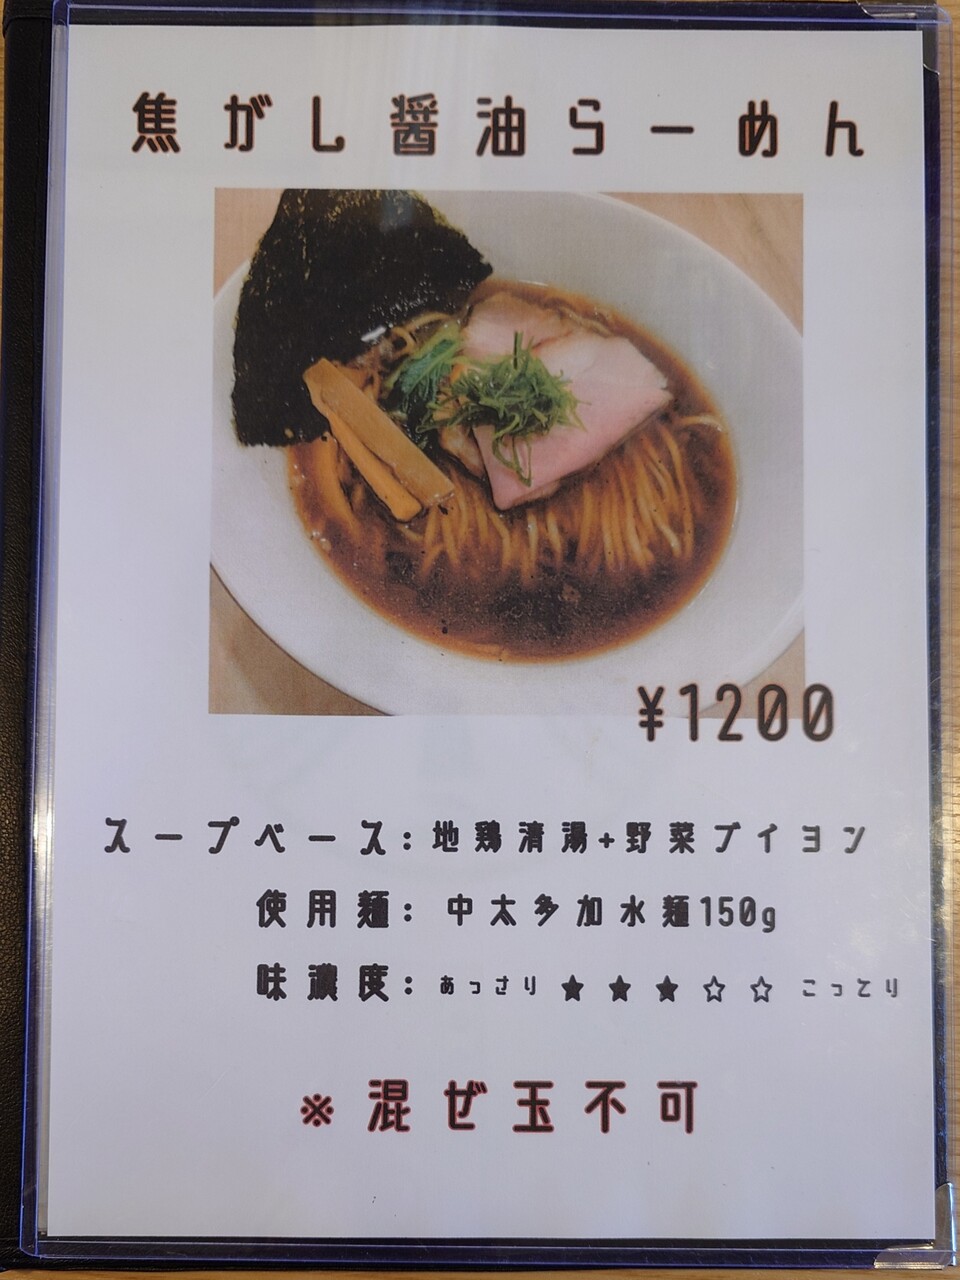 焦がし醤油らーめん
¥1200
スープベース:地鶏清湯+野菜ブイヨン
使用麺:中太多加水麺150g
味濃度:あっさり★★★☆☆こってり
※混ぜ玉不可